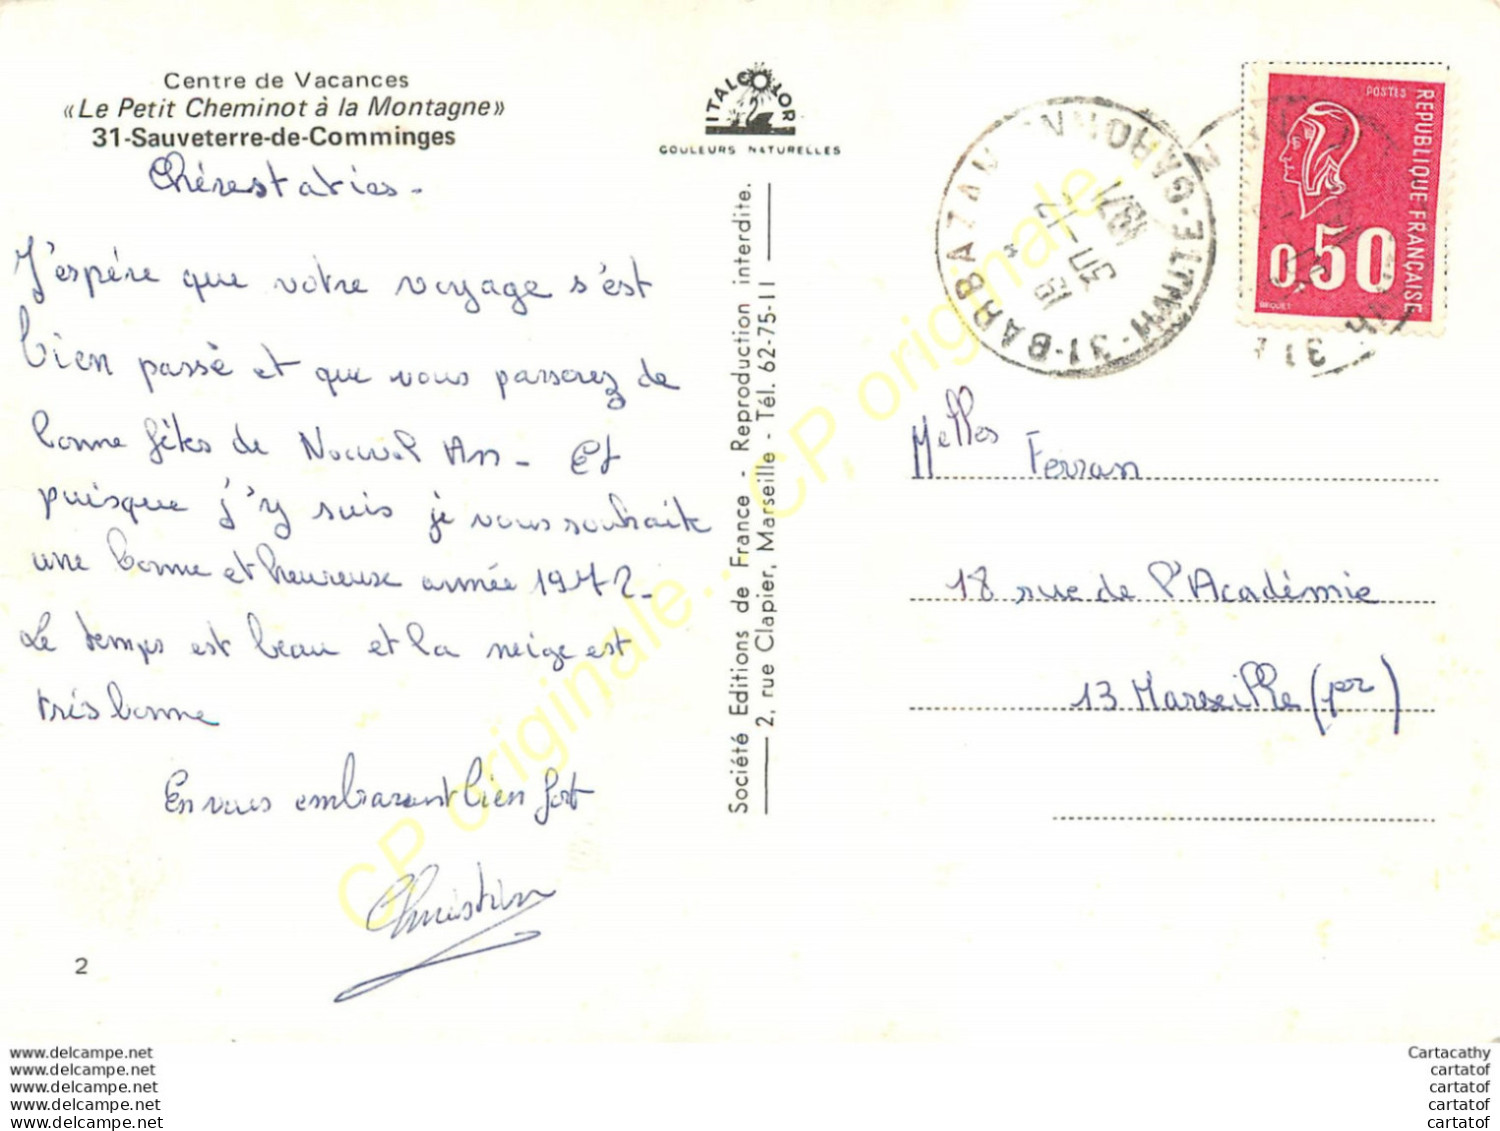 Centre de Vacances
«Le Petit Cheminot à la Montagne»
31-Sauveterre-de-Comminges
Chères taties -
J'espère que votre voyage s'est
bien passé et que vous passerez de
bonne fêtes de Nouvel An - Et
puisque j'y suis je vous souhaite
une bonne et heureuse année 1972 -
Le temps est beau et la neige est
très bonne
En vous embrassant bien fort
Christian
2
ITALCOLOR
COULEURS NATURELLES
Société Editions de France - Reproduction interdite.
2, rue Clapier, Marseille - Tél. 62-75-11
31-BARBAZAN HAUTE-GARONNE
1971
POSTES
REPUBLIQUE FRANÇAISE
0,50
BEQUET
31
Melles Ferran
18 rue de l'Académie
13 Marseille (1er)
CP originale... CP originale...
CP originale...
www.delcampe.net
www.delcampe.net
www.delcampe.net
www.delcampe.net
www.delcampe.net
www.delcampe.net
Cartacathy
cartatof
cartatof
cartatof
cartatof